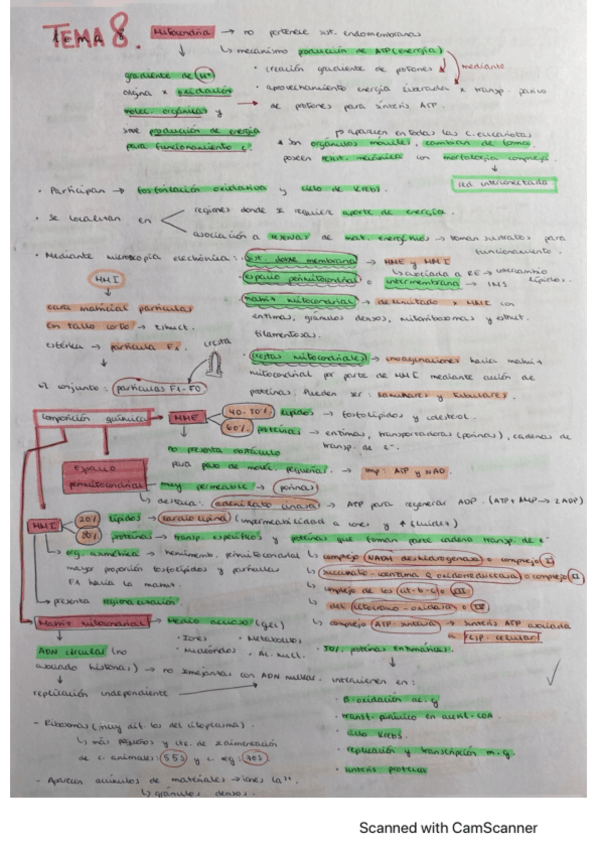 TEMA 8. Mitocondria → no pertenece sist. endomembranas
↳ mecanismo producción de ATP (energía)
gradiente de H+ · creación gradiente de protones mediante
origina x oxidación · aprovechamiento energía liberada x transp. pasivo
molec. orgánicas y → de protones para síntesis ATP.
sirve producción de energía → aparecen en todas las c. eucariotas
para funcionamiento c. * Son orgánulos móviles, cambian de forma,
poseen con morfología compleja
red interconectada
· Participan → fosforilación oxidativa y ciclo de Krebs.
· Se localizan en regiones donde se requiere aporte de energía.
asociación a reservas de mat. energéticos → toman sustratos para
funcionamiento.
· Mediante microscopía electrónica: · sist. doble membrana → MME y MMI
↳ asociada a RE → intercambio lípidos.
MMI · espacio perimitocondrial o intermembrana → IMS
cara matricial partículas · matriz mitocondrial → delimitado x MMI con
con tallo corto → estruct. enzimas, gránulos densos, mitorribosomas y estruct.
esférica → partícula F1. filamentosas.
cresta
· crestas mitocondriales → invaginaciones hacia matriz
mitocondrial por parte de MMI mediante acción de
↳ conjunto: partículas F1-F0 proteínas. Pueden ser: laminares y tubulares.
composición química → MME 40-50% lípidos → fosfolípidos y colesterol.
60% proteínas → enzimas, transportadoras (porinas), cadenas de
transp. de e-.
no presenta obstáculo
para paso de moléc. pequeñas. → imp: ATP y NAD.
Espacio perimitocondrial muy permeable → porinas
↳ destaca: adenilato kinasa → ATP para regenerar ADP. (ATP + AMP → 2ADP)
MMI 20% lípidos → cardiolipina (impermeabilidad a iones y ↑ fluidez)
80% proteínas → transp. específicos y proteínas que forman parte cadena transp. de e-
→ org. asimétrica → hemimemb. perimitocondrial ↳ complejo NADH deshidrogenasa o complejo I
mayor proporción fosfolípidos y partículas ↳ succinato-ubiquinona oxidorreductasa o complejo II
F1 hacia la matriz. ↳ complejo de los cit-b-c o III
↳ presenta ↳ del citocromo-oxidasa o IV
Matriz mitocondrial → Medio acuoso (gel) ↳ complejo ATP sintasa → síntesis ATP asociada
a resp. celular
· Iones · Metabolitos
ADN circular (no · Nucleótidos · Ac. nucl. · 50% proteínas enzimáticas.
asociado histonas) → no semejantes con ADN nuclear. intervienen en:
replicación independiente · β-oxidación ac. g
· transf. pirúvico en acetil-COA
- Ribosomas (muy dif. los del citoplasma). · ciclo Krebs
↳ más pequeños y cte. de sedimentación · replicación y transcripción m-g.
de c. animales: 55S y c. veg: 70S · síntesis proteica
- Aparecen acúmulos de materiales → iones Ca2+.
↳ gránulos densos.
Scanned with CamScanner